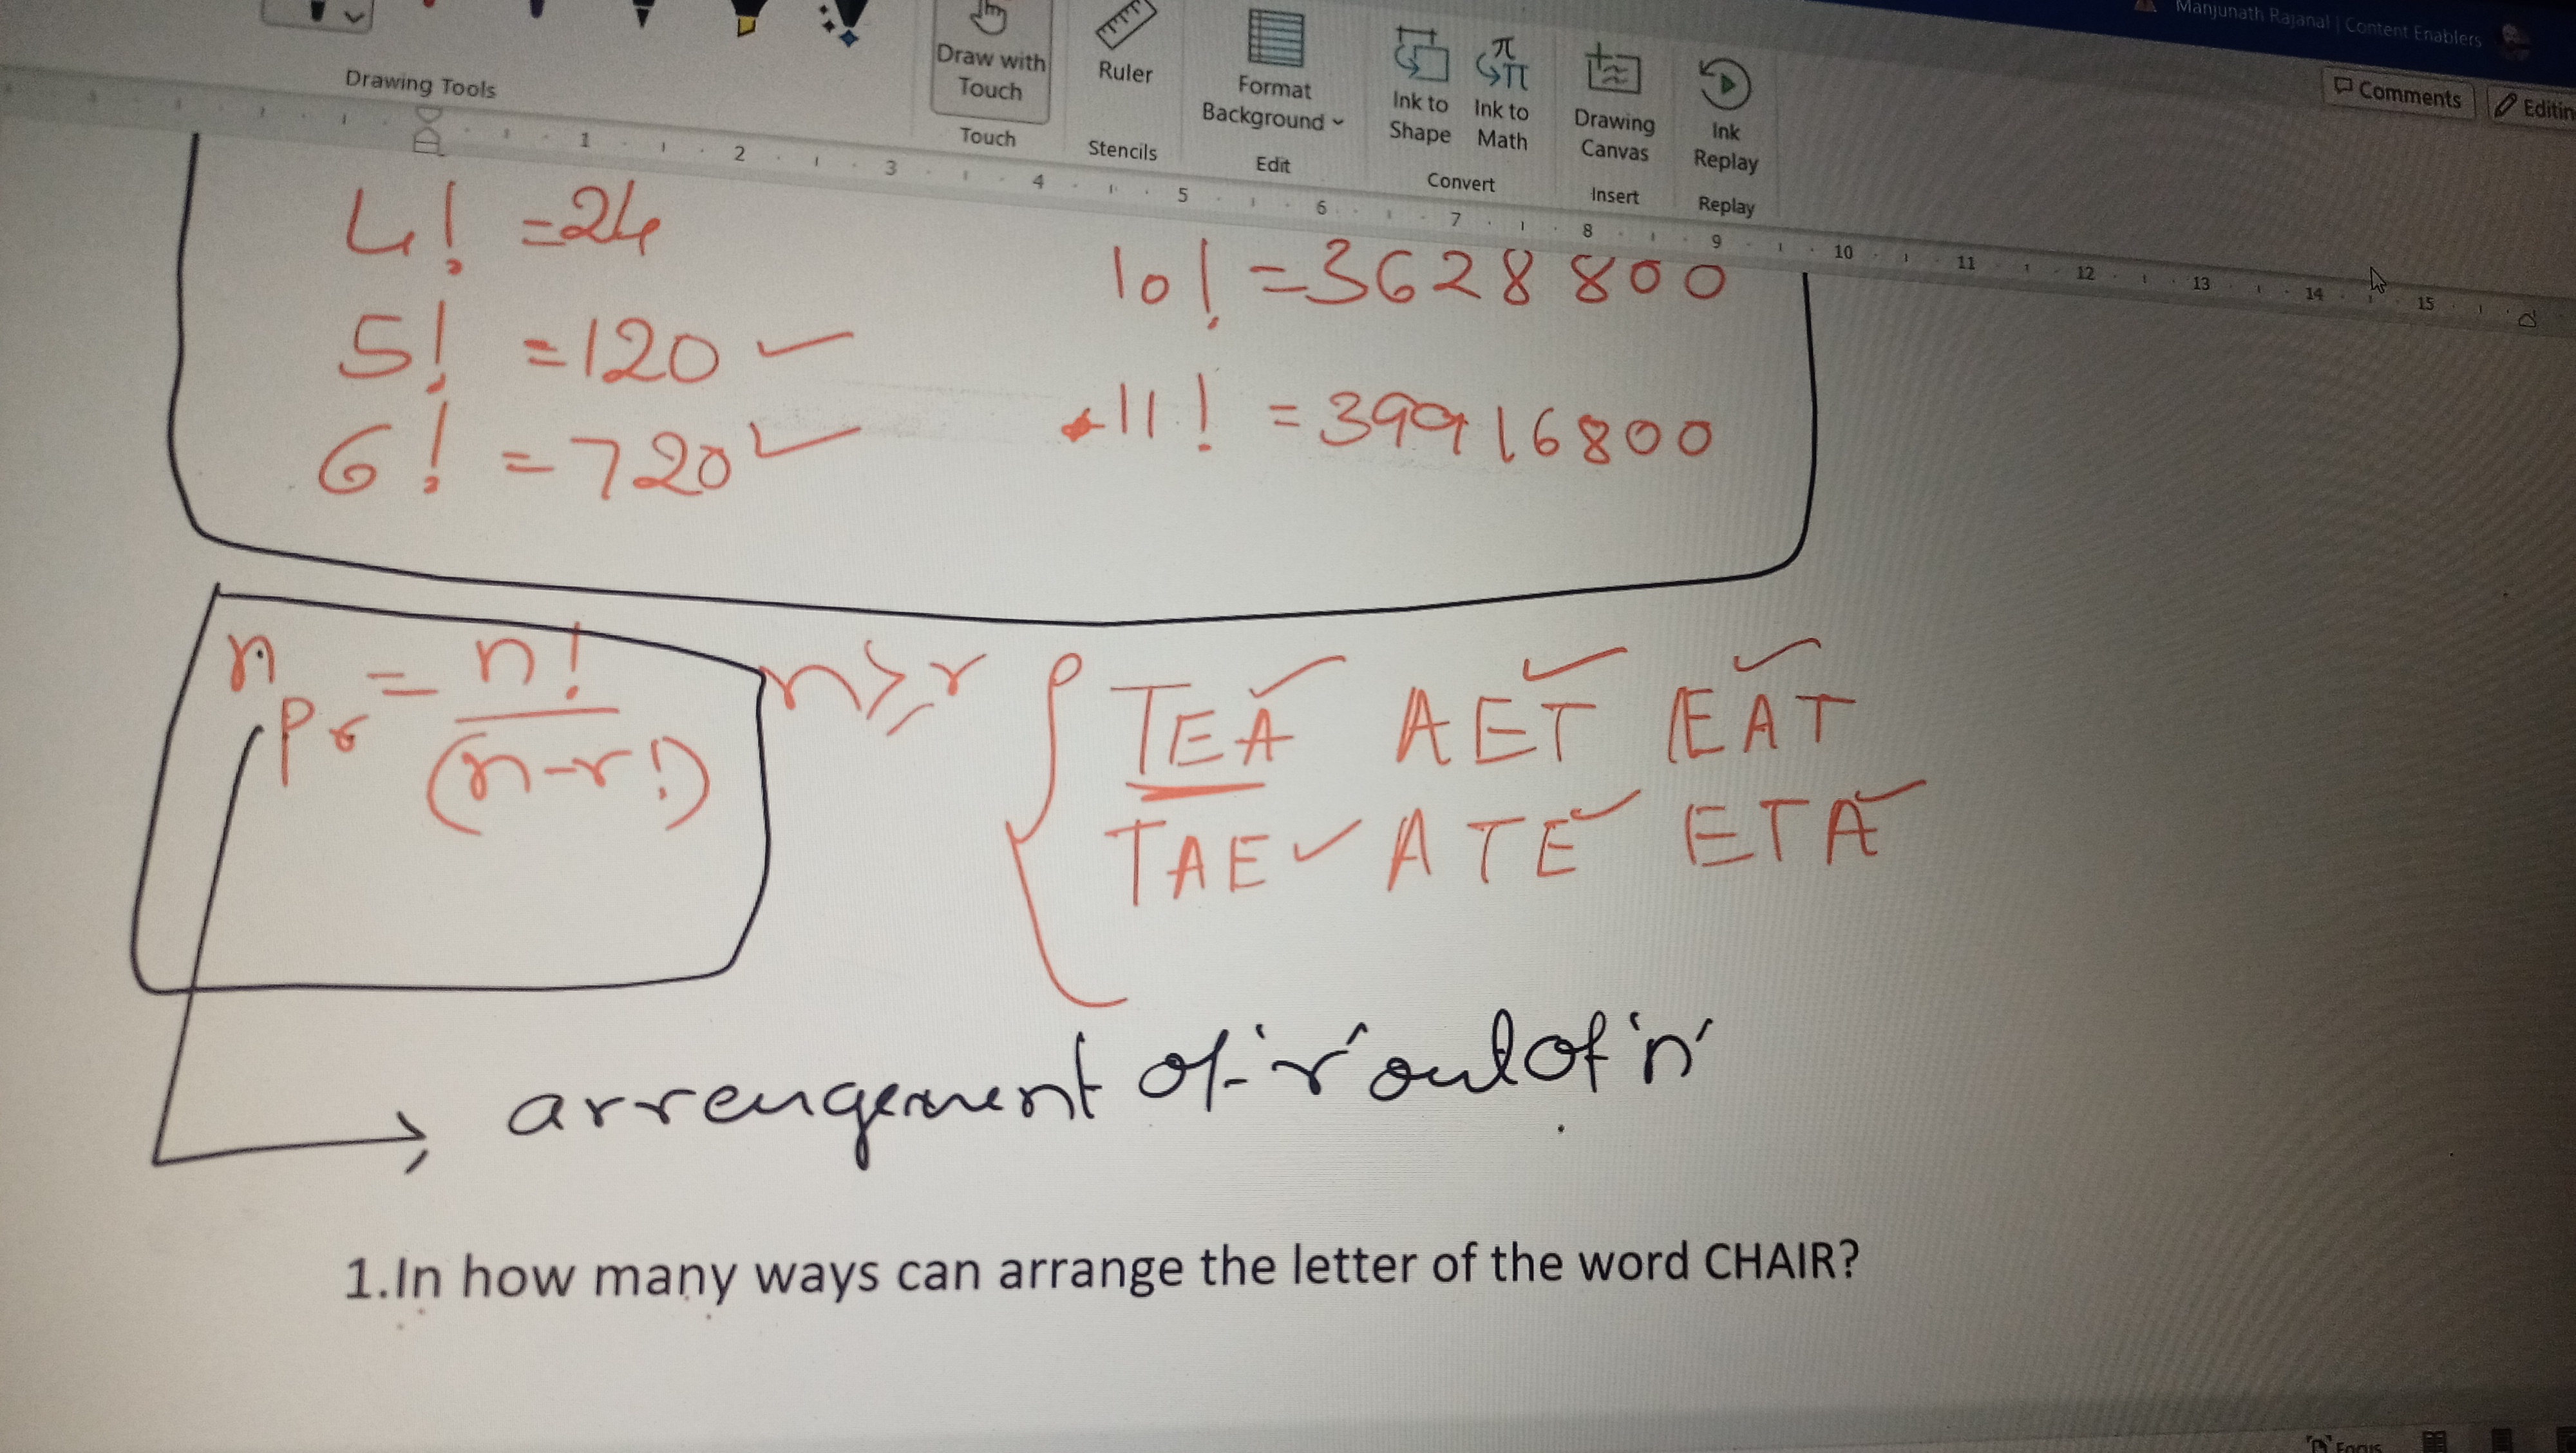 Manjunath Rajanal | Content Enablers
Comments Editin
Drawing Tools
Draw with Touch
Touch
Ruler
Stencils
Format Background
Edit
Ink to Shape
Ink to Math
Convert
Drawing Canvas
Insert
Ink Replay
Replay
1 2 3 4 5 6 7 8 9 10 11 12 13 14 15
4! = 24
10! = 3628800
5! = 120
11! = 39916800
6! = 720
nPr = n!
(n-r!)
n ≥ r
TEA AET EAT
TAE ATE ETA
arrengement of 'r' out of 'n'
1.In how many ways can arrange the letter of the word CHAIR?
Focus